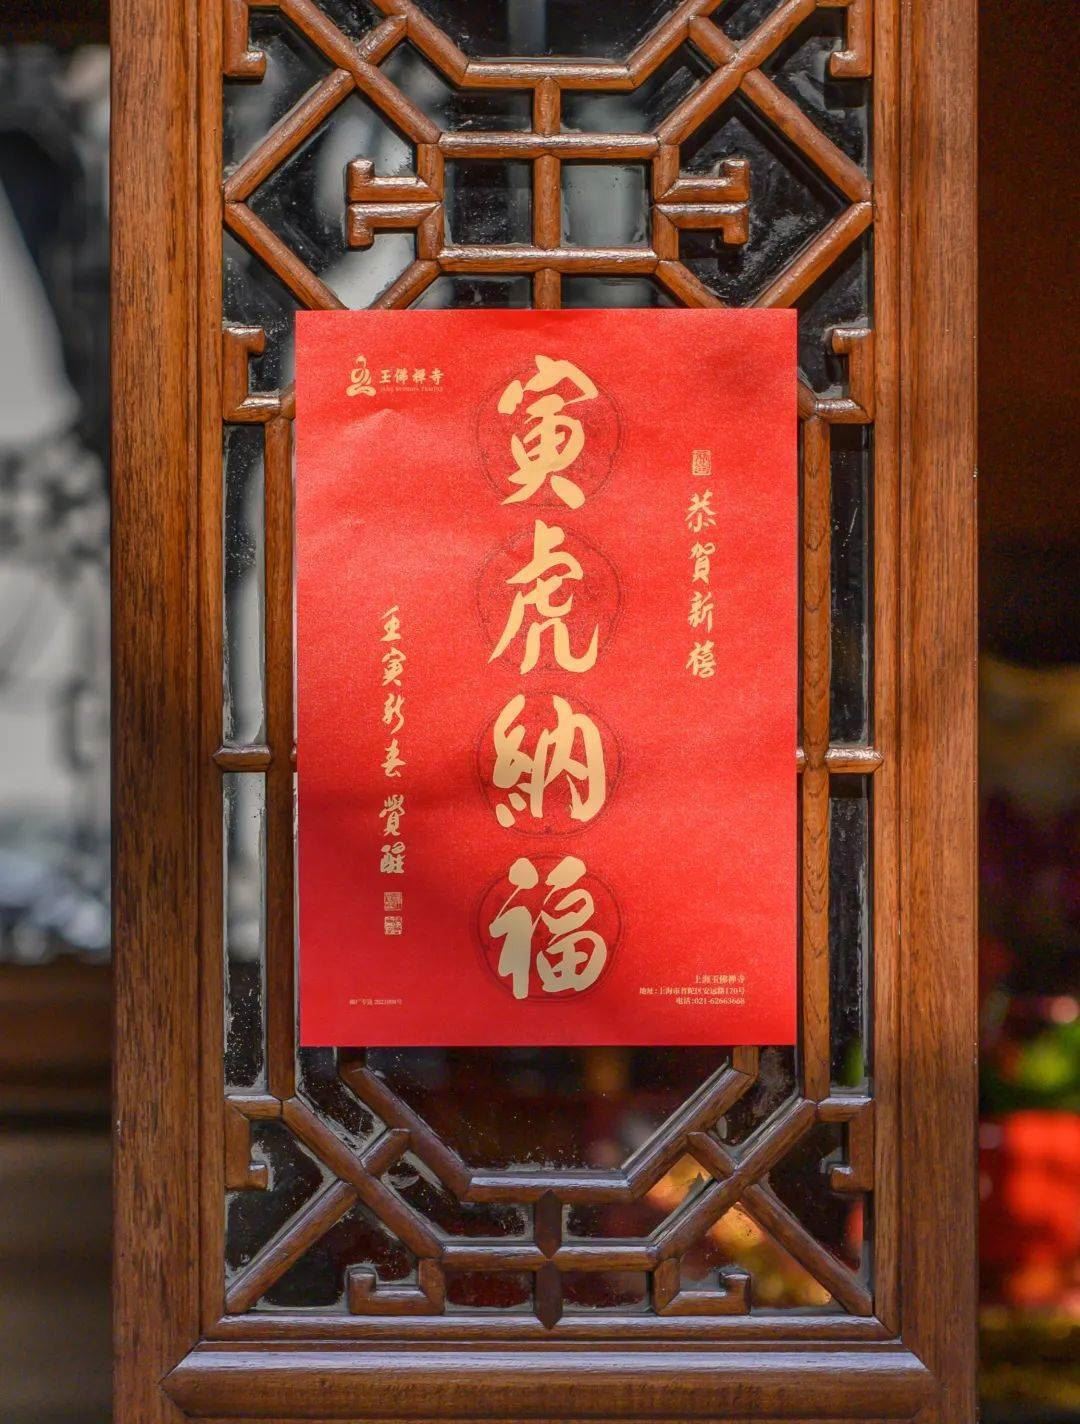 玉佛禅寺
JADE BUDDHA TEMPLE
恭賀新禧
寅虎納福
壬寅新春 覺醒
上海玉佛禅寺
地址:上海市普陀区安远路170号
电话:021-62663668